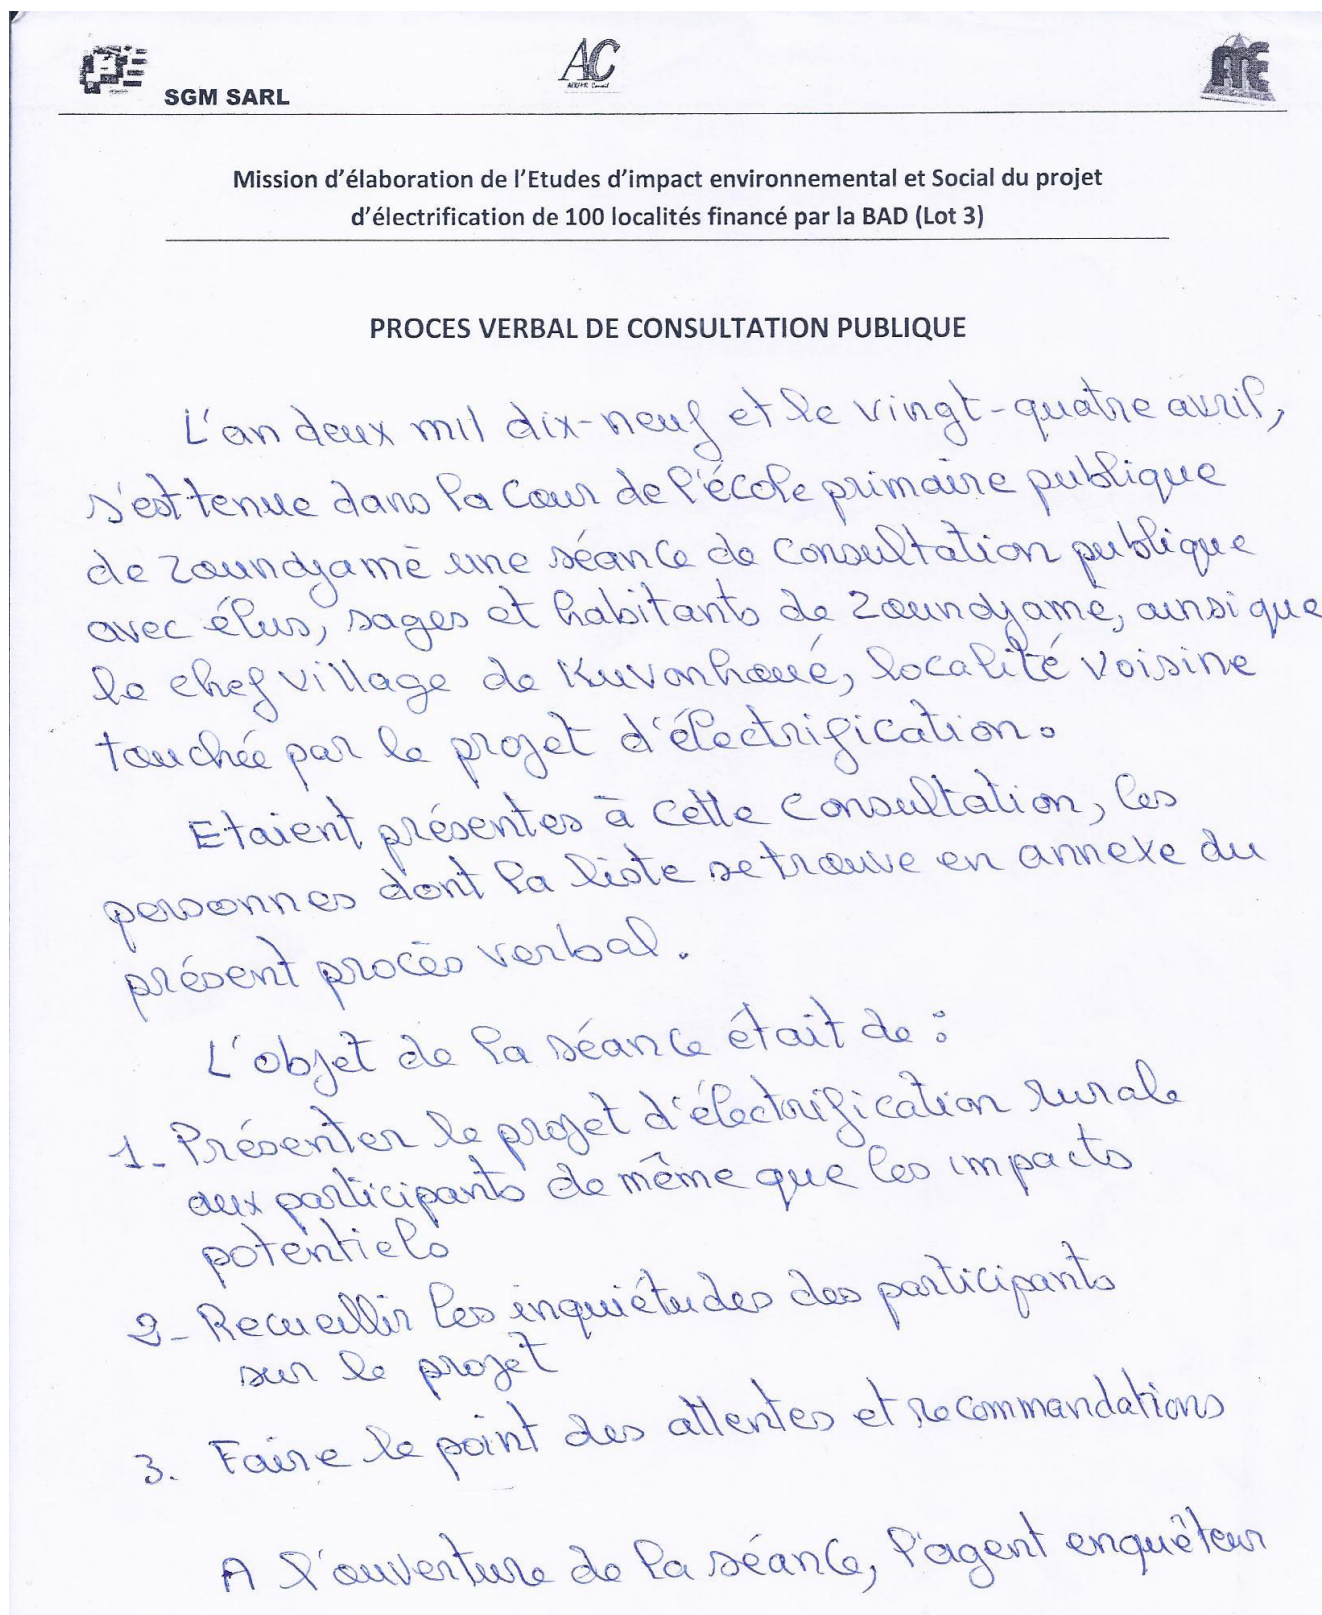 SGM SARL
AC
Mission d'élaboration de l'Etudes d'impact environnemental et Social du projet
d'électrification de 100 localités financé par la BAD (Lot 3)
PROCES VERBAL DE CONSULTATION PUBLIQUE
L'an deux mil dix-neuf et le vingt-quatre avril,
s'est tenue dans la cour de l'école primaire publique
de Zoundjamè une séance de consultation publique
avec élus, sages et habitants de Zoundjamè, ainsi que
le chef village de Kuvonhoué, localité voisine
touchée par le projet d'électrification.
Etaient présentes à cette consultation, les
personnes dont la liste se trouve en annexe du
présent procès verbal.
L'objet de la séance était de :
1- Présenter le projet d'électrification rurale
aux participants de même que les impacts
potentiels
2- Recueillir les inquiétudes des participants
sur le projet
3. Faire le point des attentes et recommandations
A l'ouverture de la séance, l'agent enquêteur